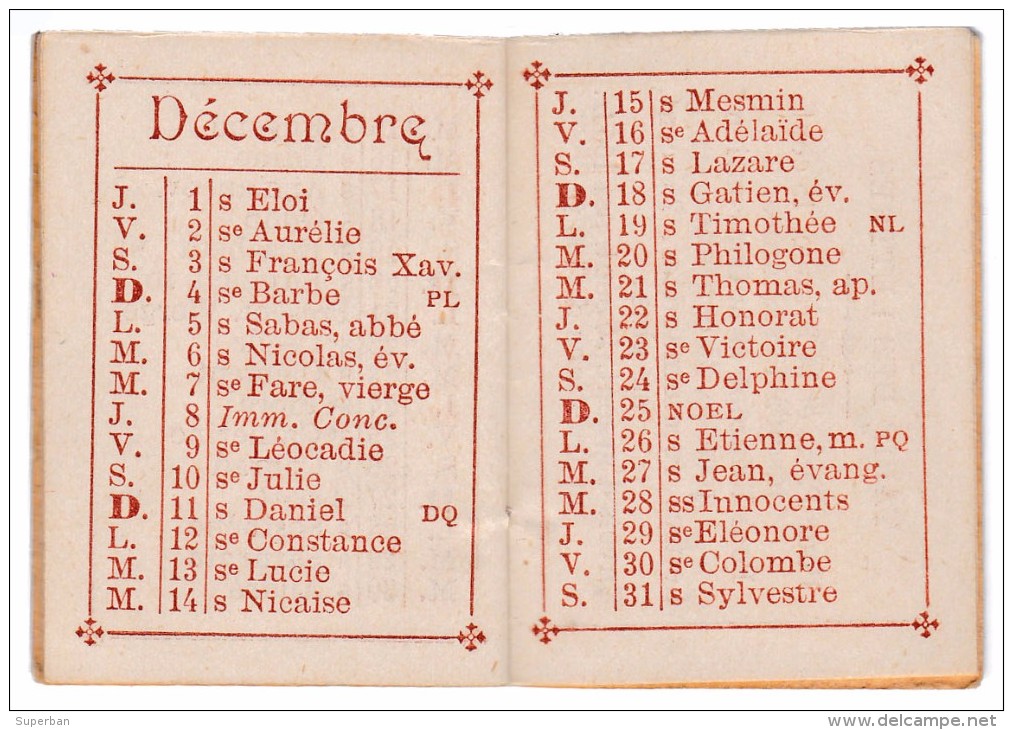 Décembre
J. 1 s Eloi
V. 2 se Aurélie
S. 3 s François Xav.
D. 4 se Barbe PL
L. 5 s Sabas, abbé
M. 6 s Nicolas, év.
M. 7 se Fare, vierge
J. 8 Imm. Conc.
V. 9 se Léocadie
S. 10 se Julie
D. 11 s Daniel DQ
L. 12 se Constance
M. 13 se Lucie
M. 14 s Nicaise
J. 15 s Mesmin
V. 16 se Adélaïde
S. 17 s Lazare
D. 18 s Gatien, év.
L. 19 s Timothée NL
M. 20 s Philogone
M. 21 s Thomas, ap.
J. 22 s Honorat
V. 23 se Victoire
S. 24 se Delphine
D. 25 NOEL
L. 26 s Etienne, m. PQ
M. 27 s Jean, évang.
M. 28 ss Innocents
J. 29 se Eléonore
V. 30 se Colombe
S. 31 s Sylvestre
Superban
delcampe.net